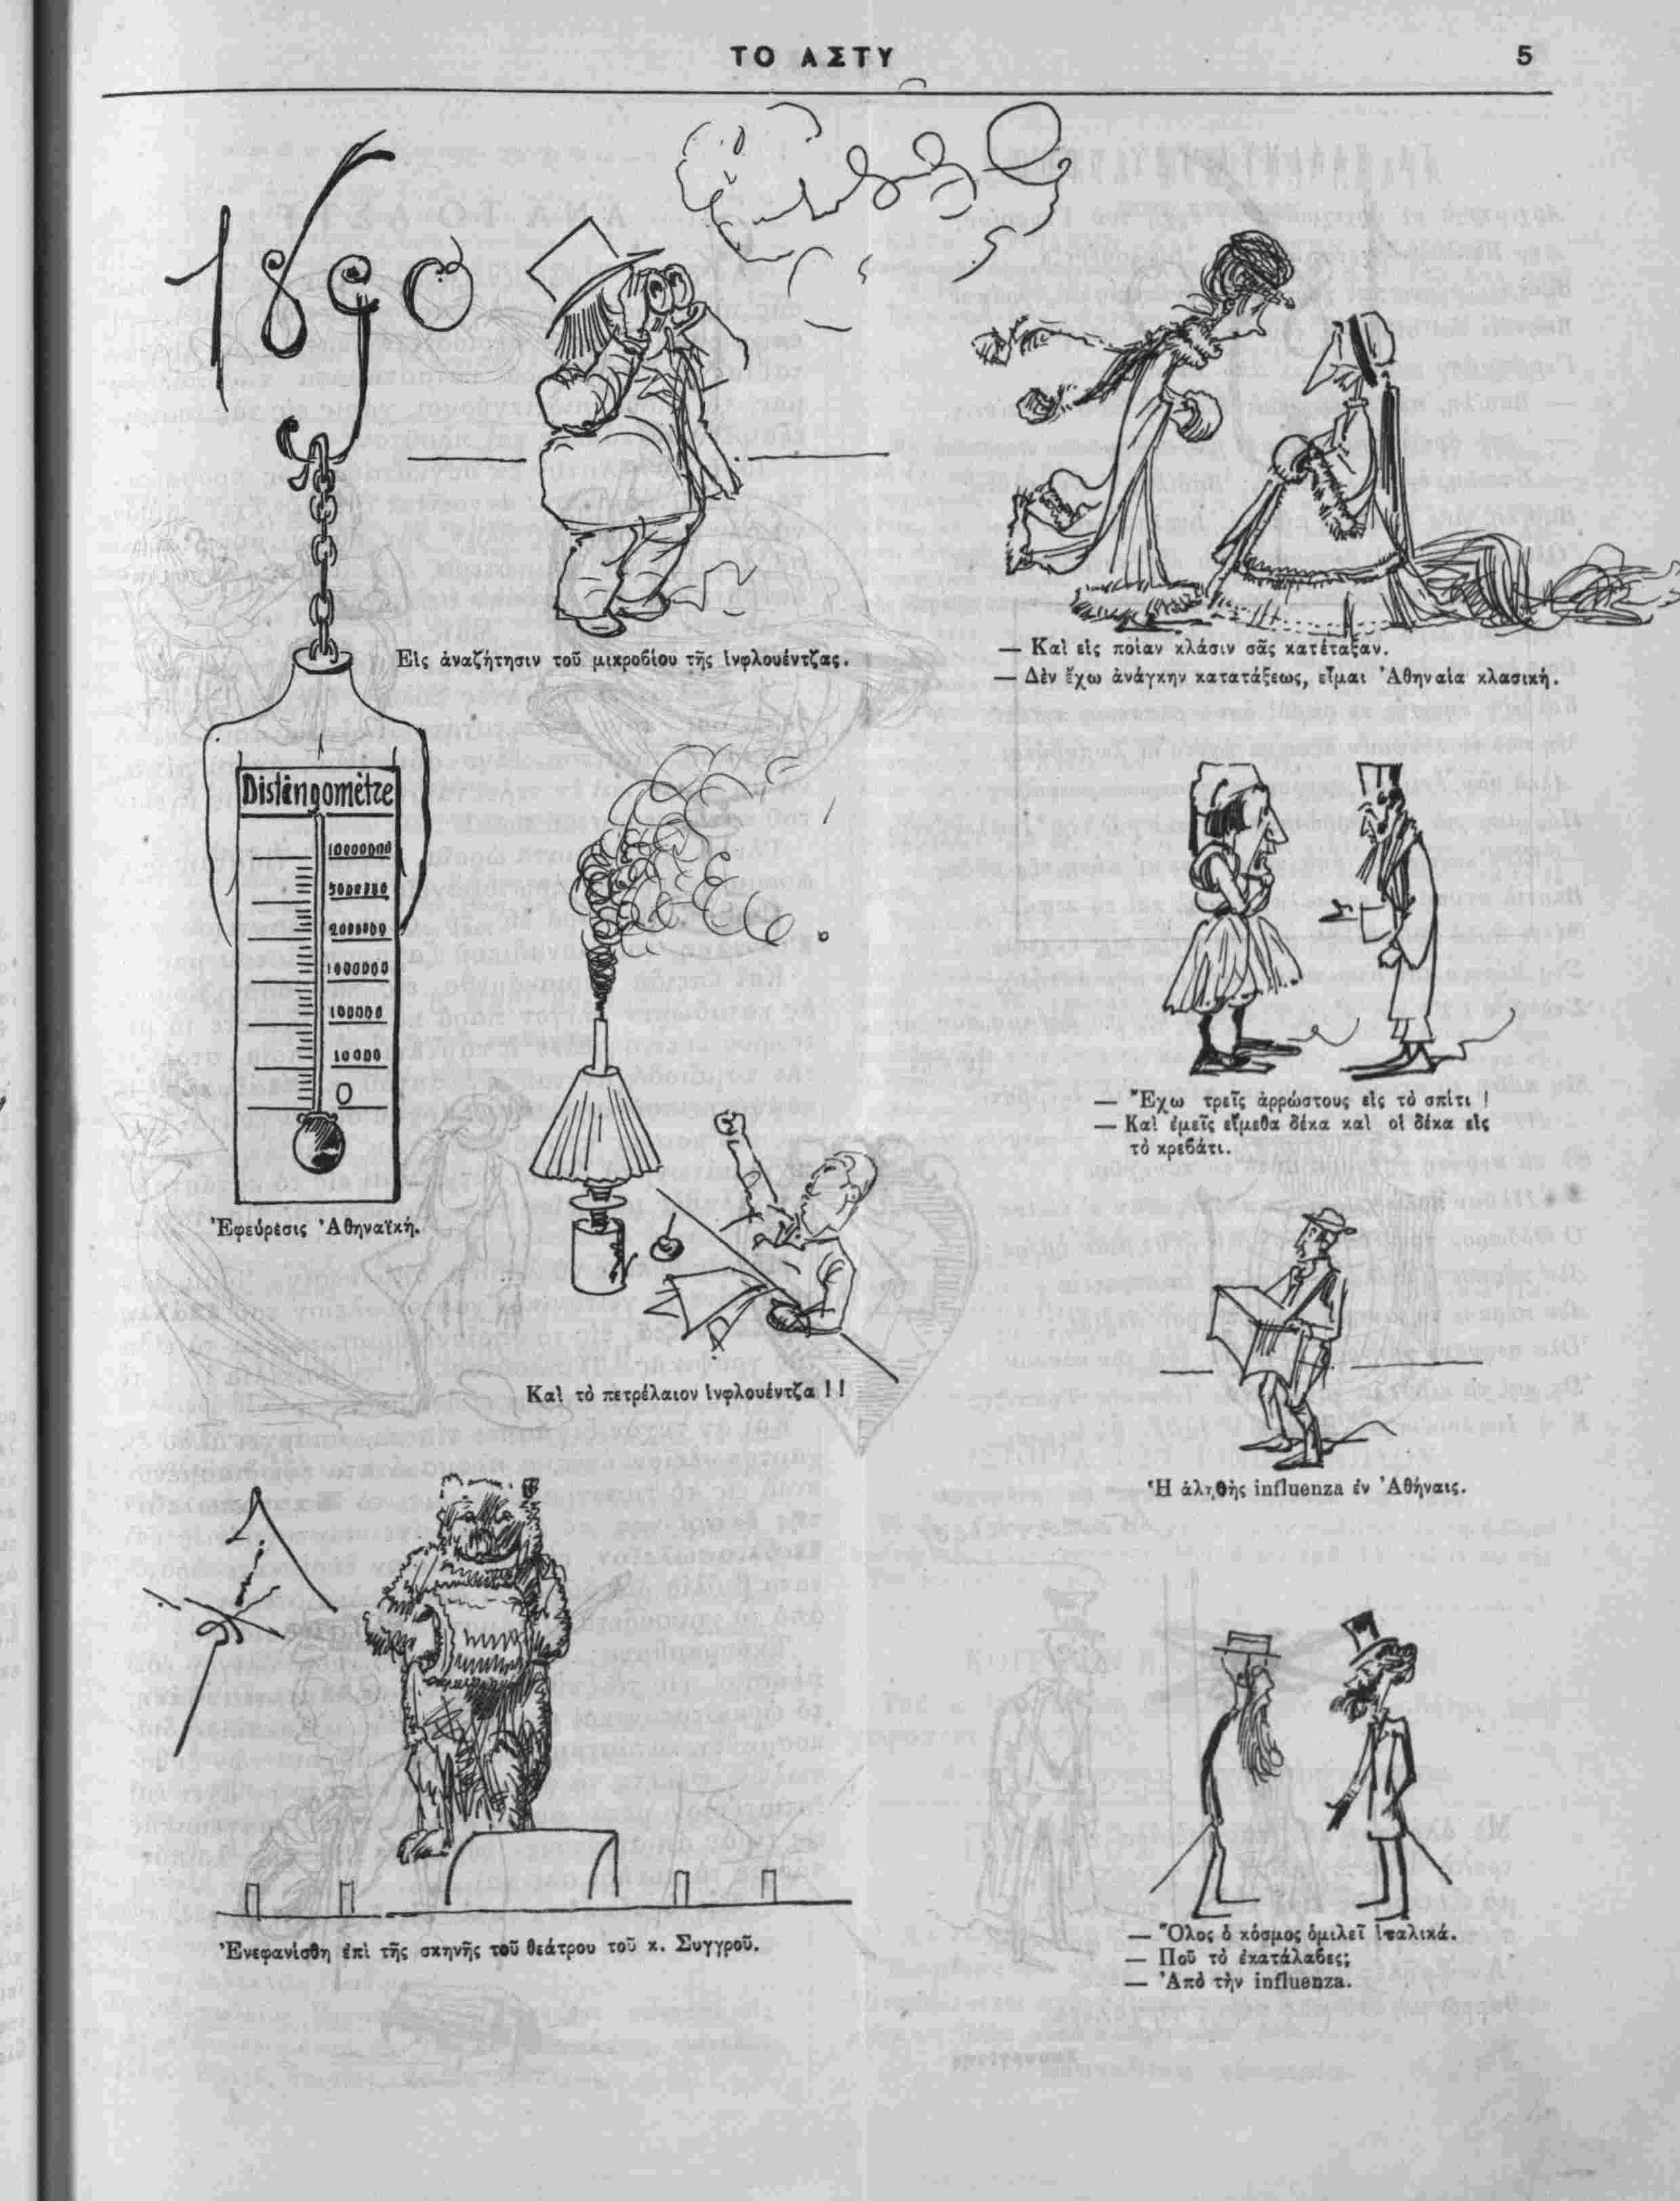 ΤΟ ΑΣΤΥ
5
1890
Εἰς ἀναζήτησιν τοῦ μικροβίου τῆς ἰνφλουέντζας.
— Καὶ εἰς ποίαν κλάσιν σᾶς κατέταξαν.
— Δὲν ἔχω ἀνάγκην κατατάξεως, εἶμαι Ἀθηναία κλασική.
Distingomètre
10000000
5000000
2000000
1000000
100000
10000
0
Ἐφεύρεσις Ἀθηναϊκή.
— Ἔχω τρεῖς ἀρρώστους εἰς τὸ σπίτι !
— Καὶ ἐμεῖς εἴμεθα δέκα καὶ οἱ δέκα εἰς
τὸ κρεβάτι.
Καὶ τὸ πετρέλαιον ἰνφλουέντζα ! !
Ἡ ἀληθὴς influenza ἐν Ἀθήναις.
Ἐνεφανίσθη ἐπὶ τῆς σκηνῆς τοῦ θεάτρου τοῦ κ. Συγγροῦ.
— Ὅλος ὁ κόσμος ὁμιλεῖ ἰταλικά.
— Ποῦ τὸ ἐκατάλαβες;
— Ἀπὸ τὴν influenza.